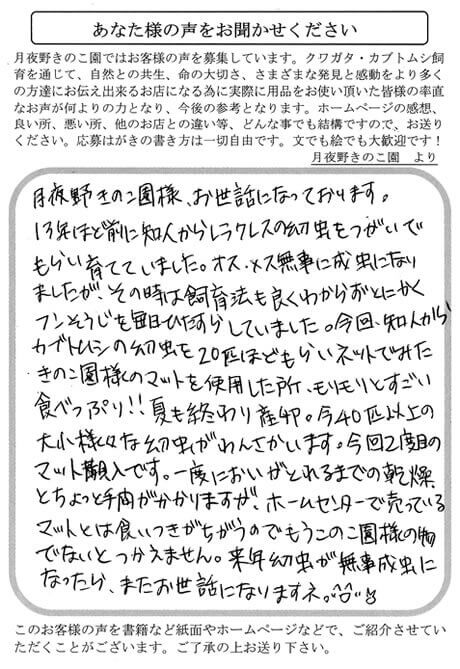 あなた様の声をお聞かせください
月夜野きのこ園ではお客様の声を募集しています。クワガタ・カブトムシ飼
育を通じて、自然との共生、命の大切さ、さまざまな発見と感動をより多く
の方達にお伝え出来るお店になる為に実際に用品をお使い頂いた皆様の率直
なお声が何よりの力となり、今後の参考となります。ホームページの感想、
良い所、悪い所、他のお店との違い等、どんな事でも結構ですので、お送り
ください。応募はがきの書き方は一切自由です。文でも絵でも大歓迎です！
月夜野きのこ園　より
月夜野きのこ園様、お世話になっております。
13年ほど前に知人からヘラクレスの幼虫をつがいで
もらい育てていました。オス・メス無事に成虫になり
ましたが、その時は飼育法も良くわからずとにかく
フンそうじを毎日ひたすらしていました。今回、知人から
カブトムシの幼虫を20匹ほどもらいネットでみた
きのこ園様のマットを使用した所、モリモリとすごい
食べっぷり!! 夏も終わり産卵。今40匹以上の
大小様々な幼虫がわんさかいます。今回2度目の
マット購入です。一度においがとれるまでの乾燥
とちょっと手間がかかりますが、ホームセンターで売っている
マットとは食いつきがちがうのでもうきのこ園様の物
でないとつかえません。来年幼虫が無事成虫に
なったら、またお世話になりますネ。
このお客様の声を書籍など紙面やホームページなどで、ご紹介させてい
ただくことがございます。ご了承の上お送り下さい。